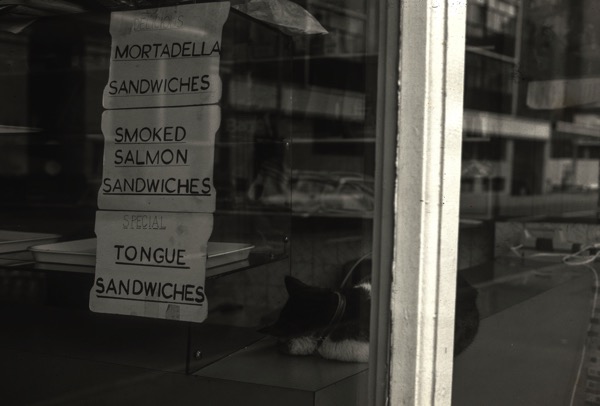 MORTADELLA
SANDWICHES
SMOKED
SALMON
SANDWICHES
SPECIAL
TONGUE
SANDWICHES